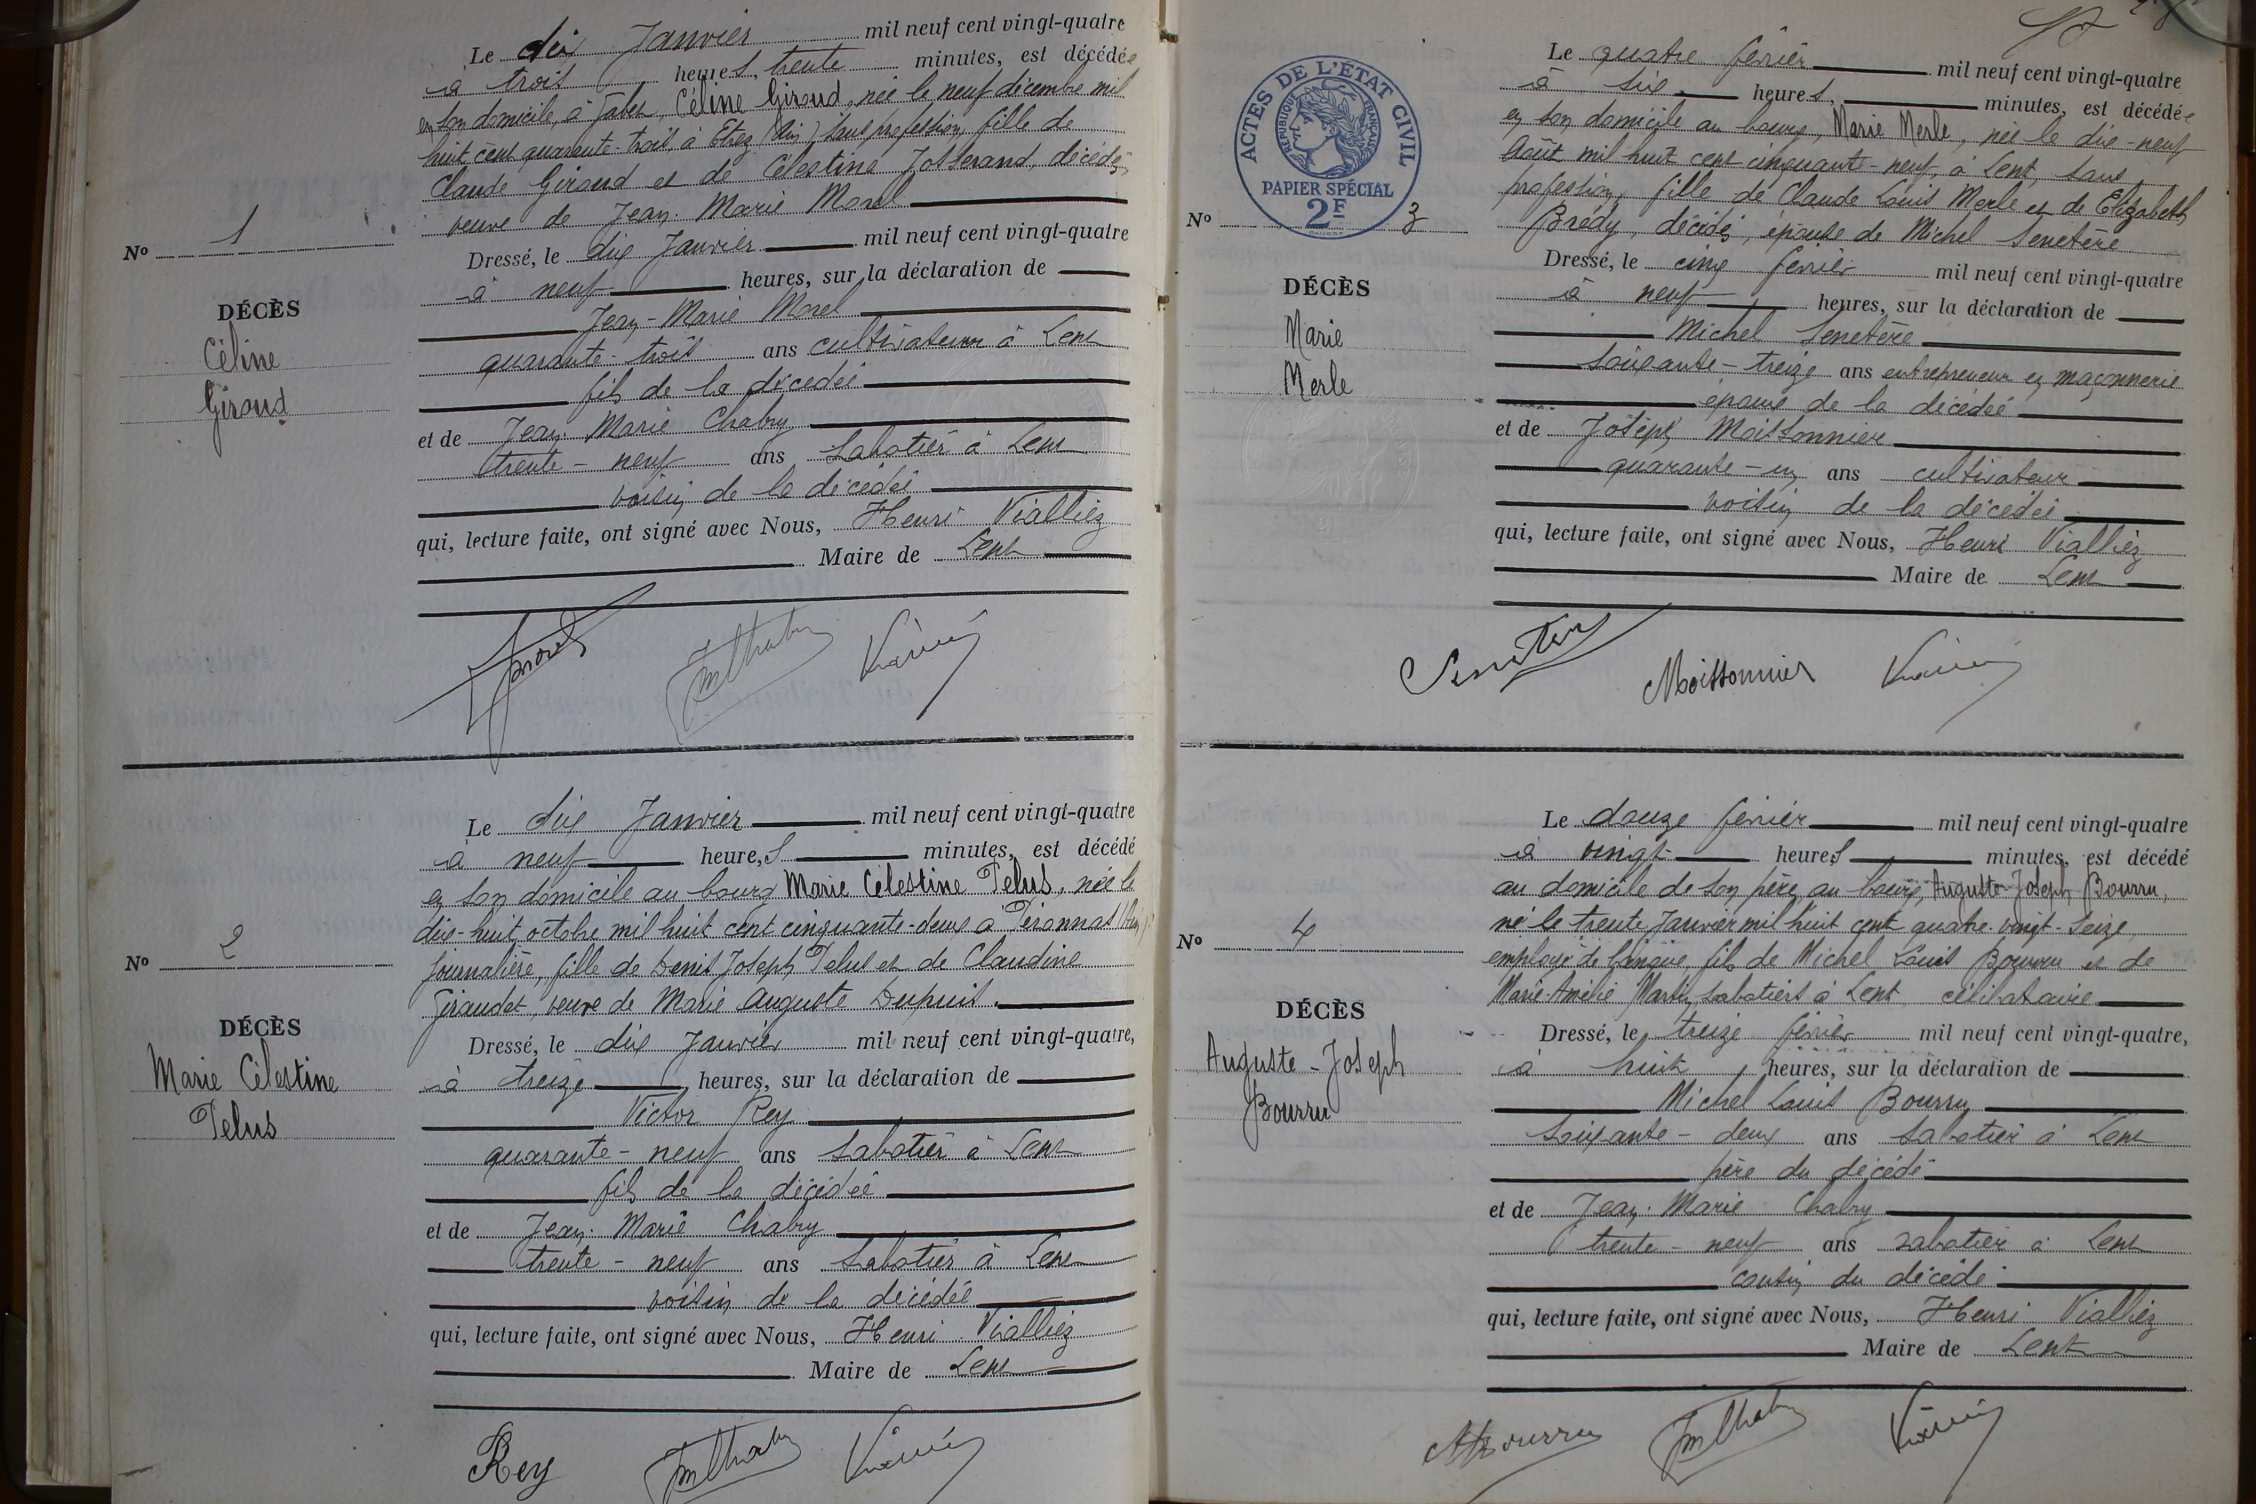 Le dix Janvier mil neuf cent vingt-quatre
à trois heures, trente minutes, est décédée
en son domicile, à Céline Giroud, née le neuf décembre mil
huit cent quarante-trois, à Etrez (Ain) sans profession, fille de
Claude Giroud et de Célestine Josserand, décédés,
veuve de Jean-Marie Morel
No 1
Dressé, le dix Janvier mil neuf cent vingt-quatre
à neuf heures, sur la déclaration de
DÉCÈS
Céline
Giroud
Jean-Marie Morel
quarante-trois ans cultivateur à Lent
fils de la décédée
et de Jean-Marie Chabry
trente-neuf ans Sabotier à Lent
voisin de la décédée
qui, lecture faite, ont signé avec Nous, Henri Vialliez
Maire de Lent
Morel
JMChabry
Le dix Janvier mil neuf cent vingt-quatre
à neuf heures minutes, est décédé
en son domicile au bourg Marie Célestine Pelus, née le
dix-huit octobre mil huit cent cinquante-deux à Péronnas (Ain)
journalière, fille de Denis Joseph Pelus et de Claudine
Giraudet, veuve de Marie Auguste Dupuis.
No 2
Dressé, le dix Janvier mil neuf cent vingt-quatre,
à treize heures, sur la déclaration de
DÉCÈS
Marie Célestine
Pelus
Victor Rey
quarante-neuf ans Sabotier à Lent
fils de la décédée
et de Jean-Marie Chabry
trente-neuf ans Sabotier à Lent
voisin de la décédée
qui, lecture faite, ont signé avec Nous, Henri Vialliez
Maire de Lent
Rey
JMChabry
ACTES DE L'ÉTAT CIVIL
RÉPUBLIQUE FRANÇAISE
PAPIER SPÉCIAL
2F
Le quatre février mil neuf cent vingt-quatre
à six heures, minutes, est décédée
en son domicile au bourg, Marie Merle, née le dix-neuf
Août mil huit cent cinquante-neuf, à Lent, sans
profession, fille de Claude Louis Merle et de Elizabeth
Brédy, décédés, épouse de Michel Senetère
No 3
Dressé, le cinq février mil neuf cent vingt-quatre
à neuf heures, sur la déclaration de
DÉCÈS
Marie
Merle
Michel Senetère
soixante-treize ans entrepreneur en maçonnerie
époux de la décédée
et de Joseph Moissonnier
quarante-un ans cultivateur
voisin de la décédée
qui, lecture faite, ont signé avec Nous, Henri Vialliez
Maire de Lent
Moissonnier
Le douze février mil neuf cent vingt-quatre
à vingt heures minutes, est décédé
au domicile de son père, au bourg, Auguste-Joseph Bourru,
né le trente Janvier mil huit cent quatre-vingt-seize
employé de banque, fils de Michel Louis Bourru et de
Marie-Amélie Martin, sabotiers à Lent célibataire
No 4
Dressé, le treize février mil neuf cent vingt-quatre,
à huit heures, sur la déclaration de
DÉCÈS
Auguste-Joseph
Bourru
Michel Louis Bourru
soixante-deux ans Sabotier à Lent
père du décédé
et de Jean-Marie Chabry
trente-neuf ans sabotier à Lent
cousin du décédé
qui, lecture faite, ont signé avec Nous, Henri Vialliez
Maire de Lent
Bourru
JMChabry